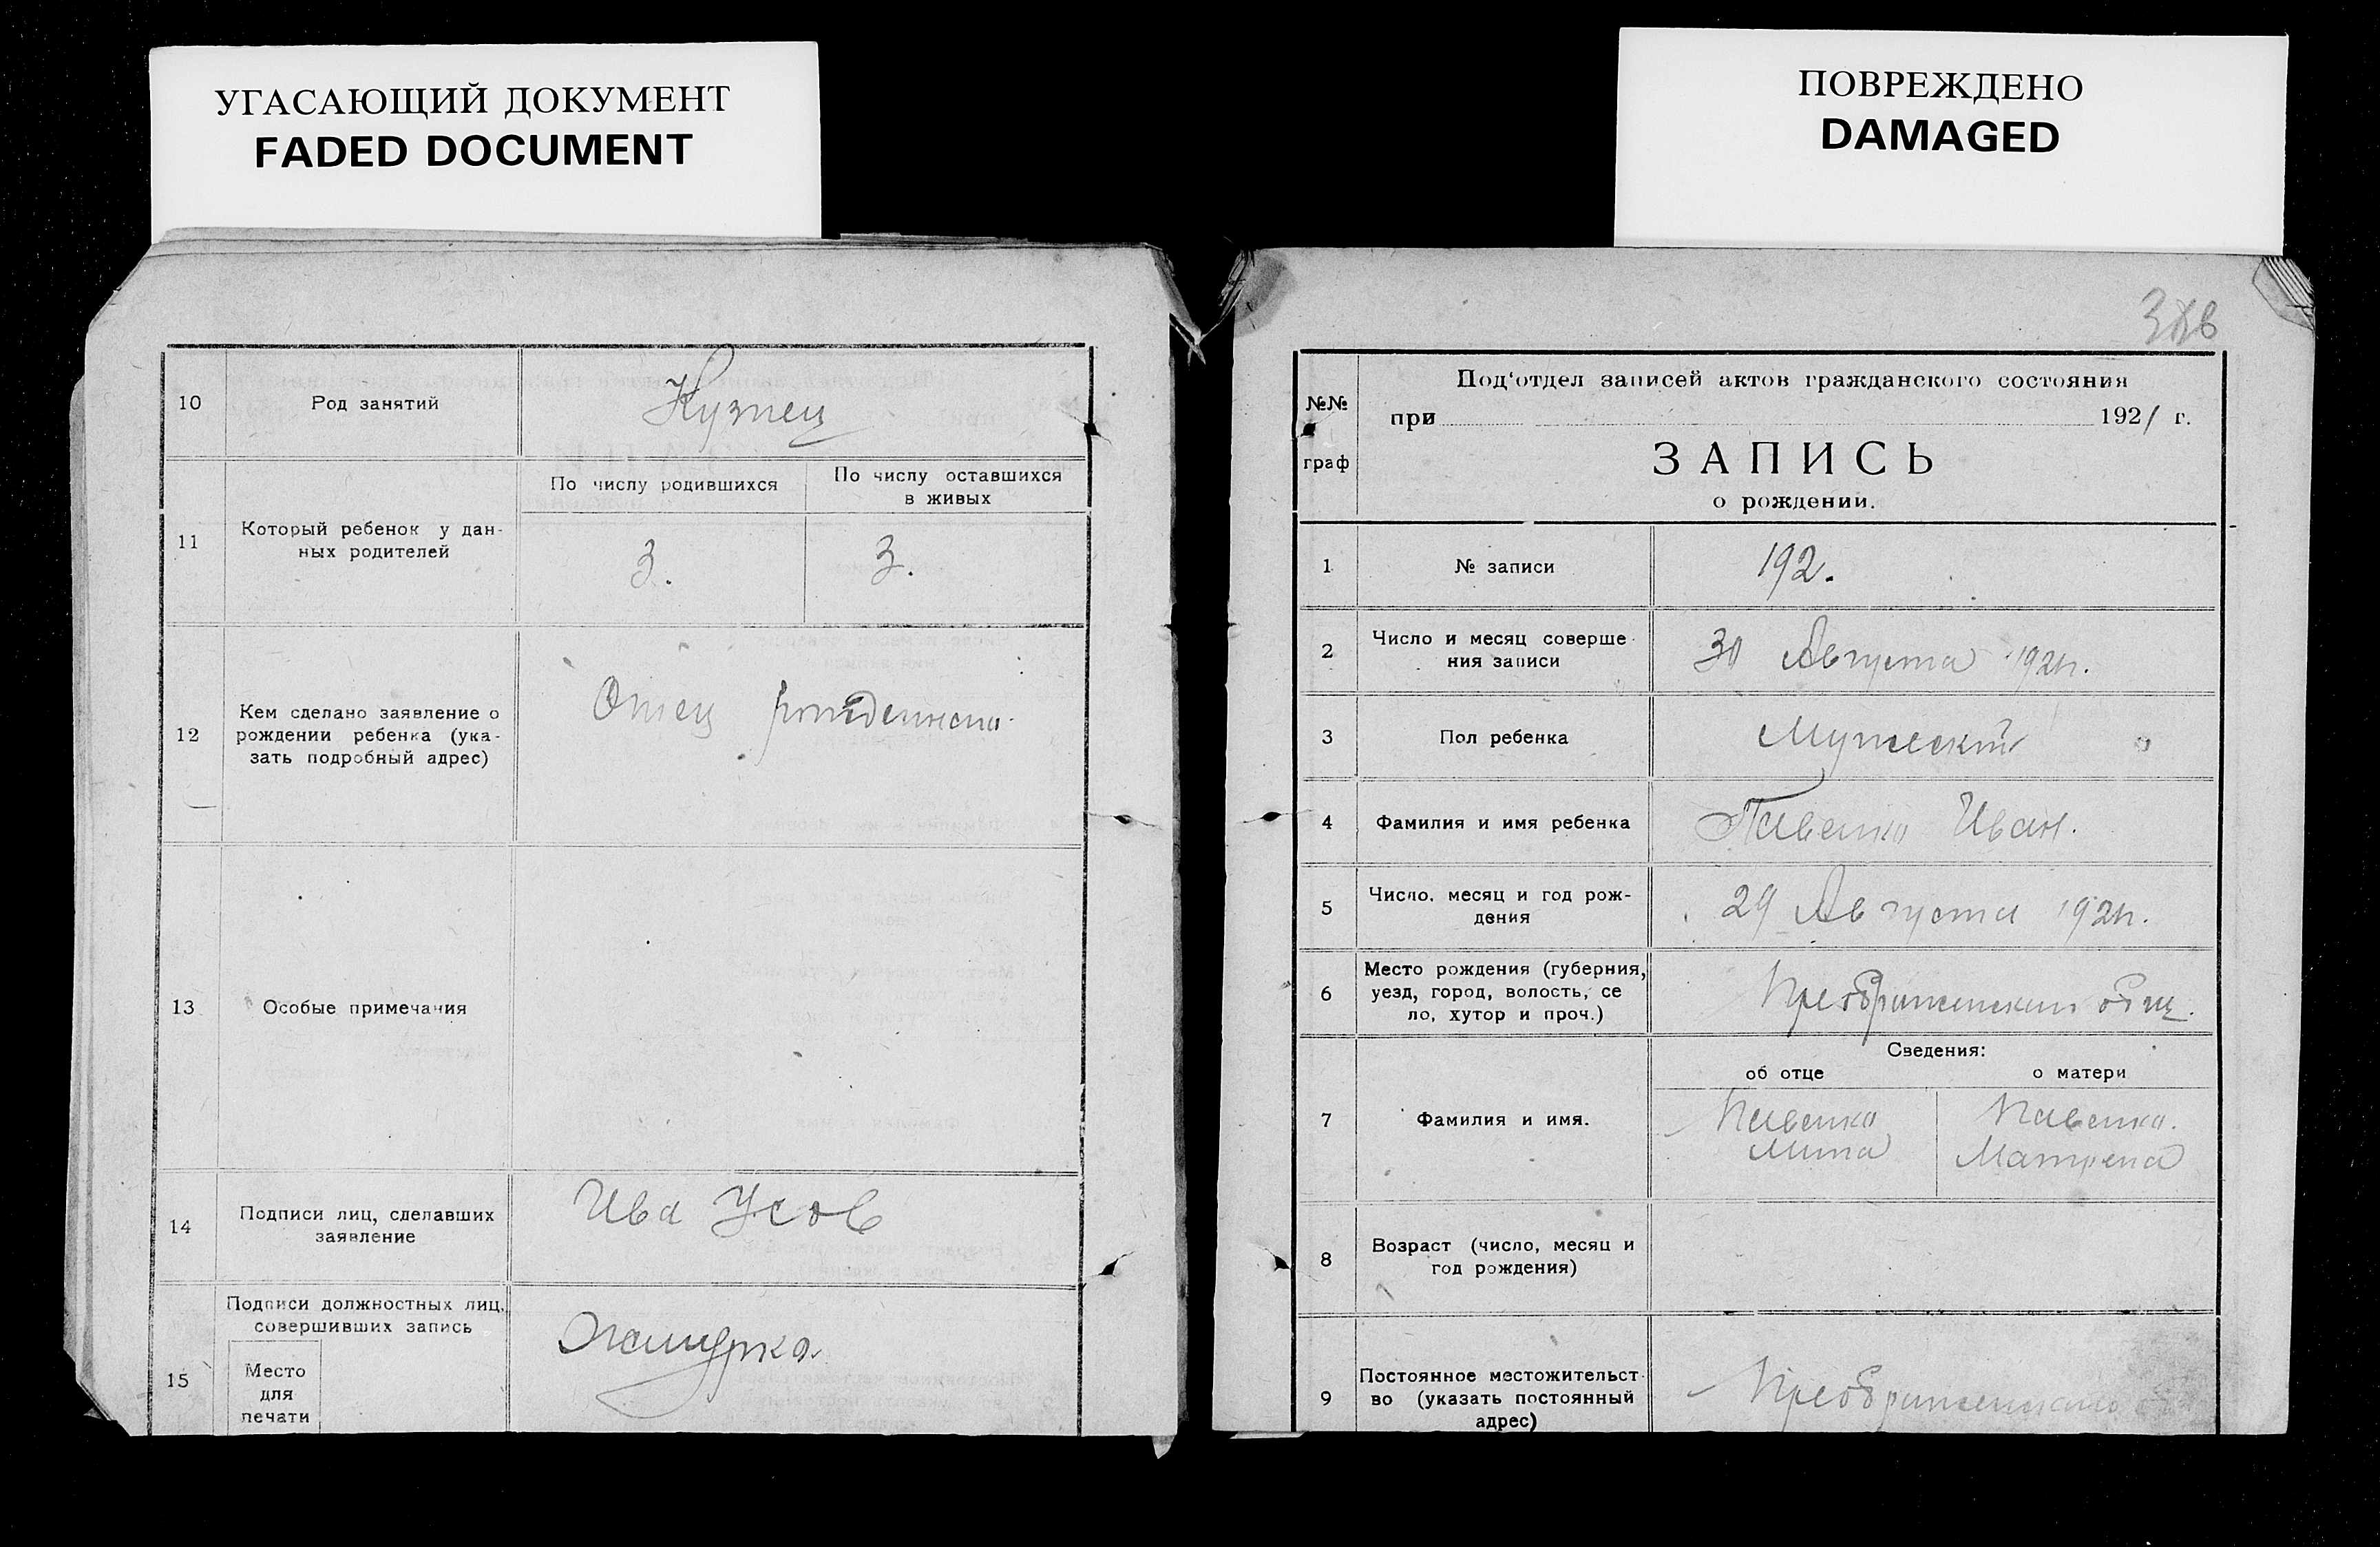 УГАСАЮЩИЙ ДОКУМЕНТ
FADED DOCUMENT
10 Род занятий Кузнец
11 Который ребенок у дан-
ных родителей
По числу родившихся
По числу оставшихся
в живых
3. 3.
12 Кем сделано заявление о
рождении ребенка (ука-
зать подробный адрес)
Отец
13 Особые примечания
14 Подписи лиц, сделавших
заявление
Ива Усов
15 Подписи должностных лиц,
совершивших запись
Место
для
печати
ПОВРЕЖДЕНО
DAMAGED
№№
граф
Под‘отдел записей актов гражданского состояния
при 1921 г.
ЗАПИСЬ
о рождении.
1 № записи 192.
2 Число и месяц соверше-
ния записи
30 Августа 1921г.
3 Пол ребенка Мужеский
4 Фамилия и имя ребенка Павенко Иван.
5 Число, месяц и год рож-
дения
29 Августа 1921г.
6 Место рождения (губерния,
уезд, город, волость, се
ло, хутор и проч.)
общ.
Сведения:
об отце о матери
7 Фамилия и имя.
Павенко Павенко.
Матрена
8 Возраст (число, месяц и
год рождения)
9 Постоянное местожительст-
во (указать постоянный
адрес)